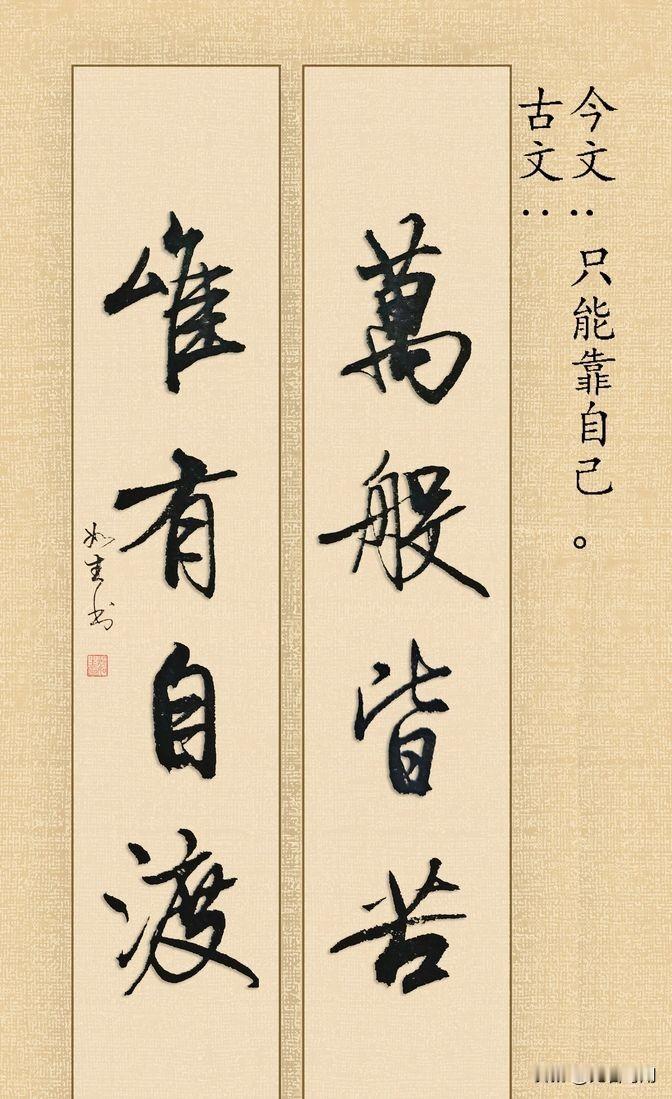 今文：只能靠自己。
古文：
萬般皆苦
唯有自渡
如生书